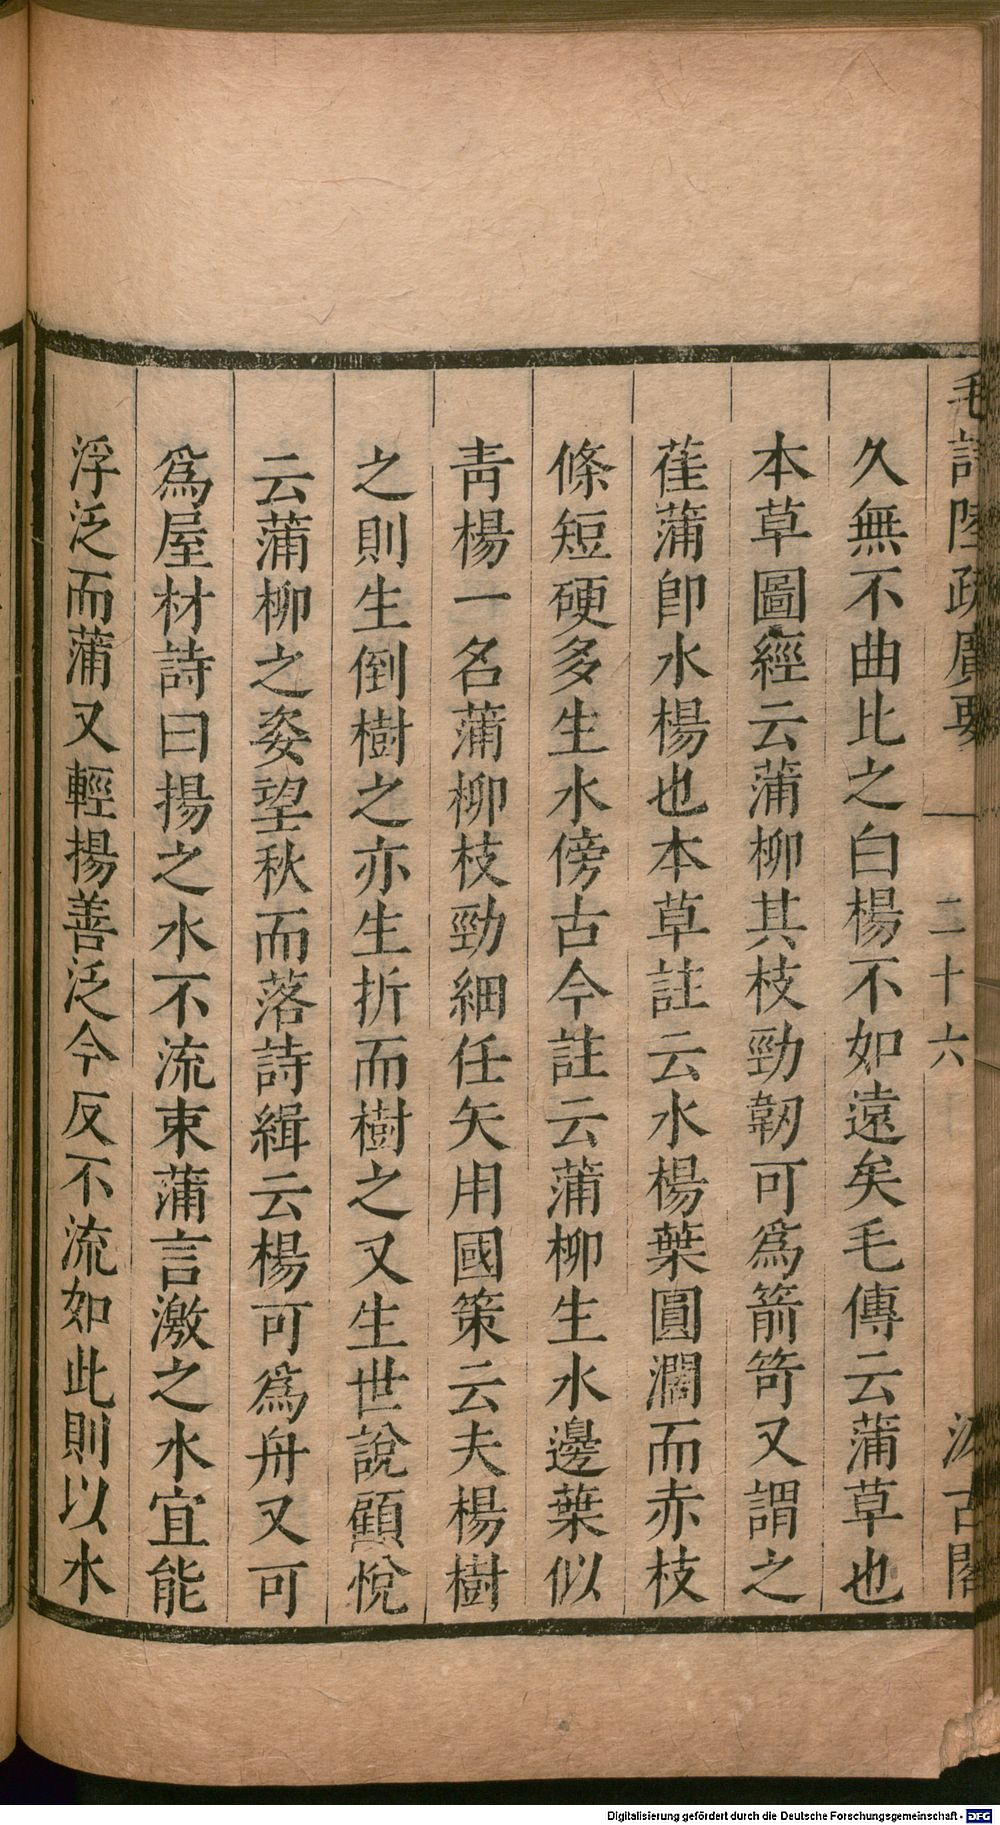 毛詩陸疏廣要 二十六 汲古閣
久無不曲比之白楊不如遠矣毛傳云蒲草也
本草圖經云蒲柳其枝勁韌可爲箭笴又謂之
萑蒲卽水楊也本草註云水楊葉圓濶而赤枝
條短硬多生水傍古今註云蒲柳生水邊葉似
靑楊一名蒲柳枝勁細任矢用國策云夫楊樹
之則生倒樹之亦生折而樹之又生世說顧悅
云蒲柳之姿望秋而落詩緝云楊可爲舟又可
爲屋材詩曰揚之水不流束蒲言激之水宜能
浮泛而蒲又輕揚善泛今反不流如此則以水
Digitalisierung gefördert durch die Deutsche Forschungsgemeinschaft - DFG